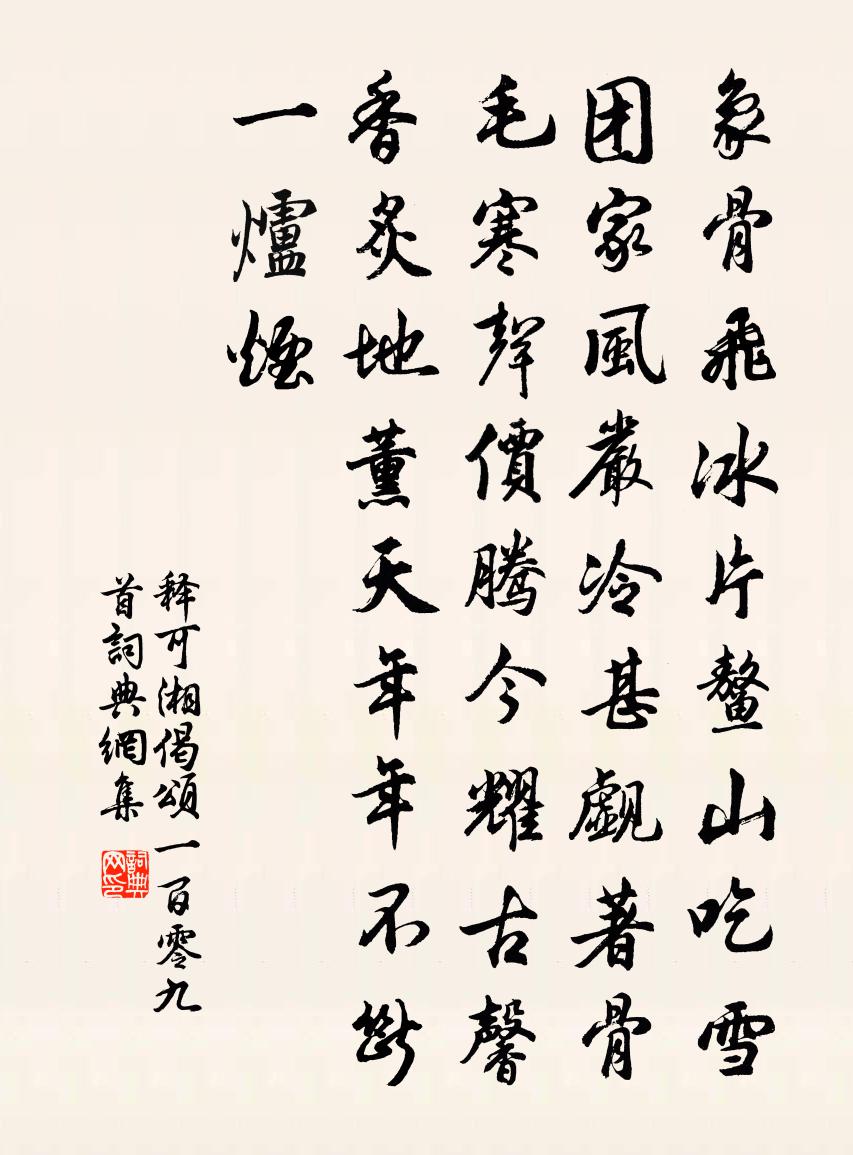 象骨飛冰片鳌山吃雪
团家風嚴冷甚覷著骨
毛寒聲價騰今耀古馨
香炙地薰天年年不斷
一爐煙
释可湘偈頌一百零九
首詞典網集
詞典网印